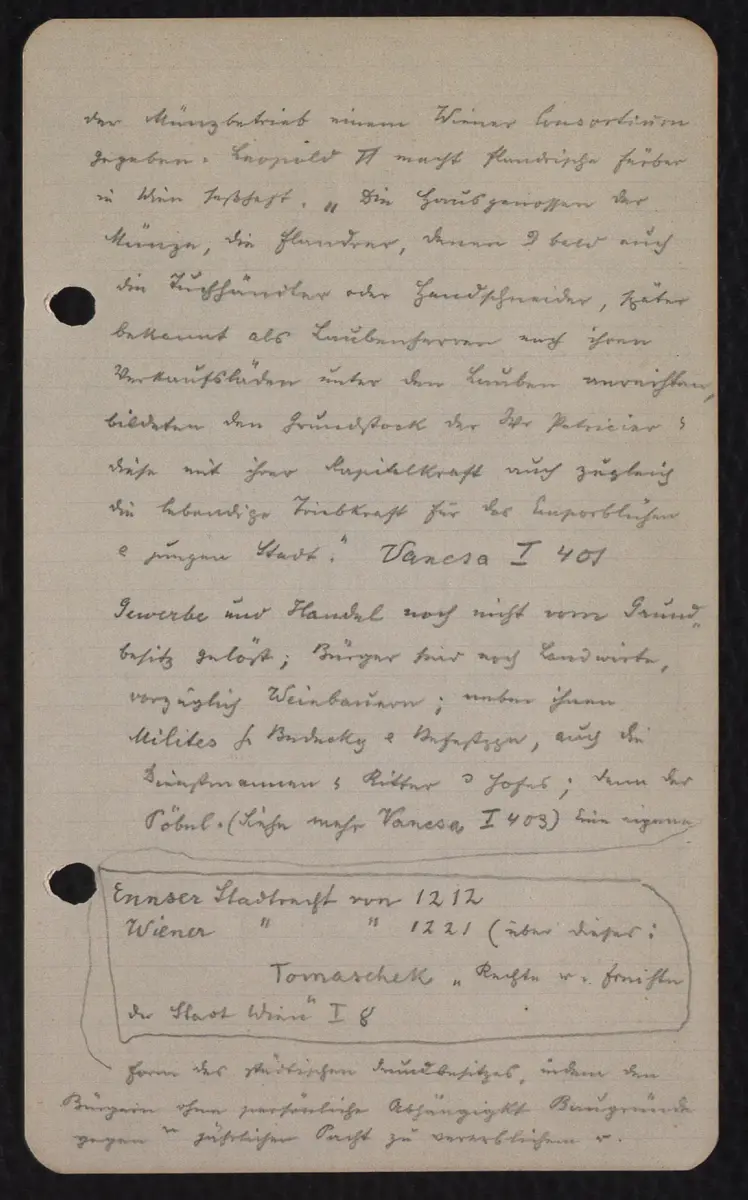 der Münzbetrieb einem Wiener Consortium
gegeben. Leopold VI macht flandrische Färber
in Wien seßhaft. „Die Hausgenossen der
Münze, die Flandrer, denen bald auch
die Tuchhändler oder Handschneider, später
bekannt als Laubenherren nach ihren
Verkaufsläden unter den Lauben anreihten,
bildeten den Grundstock der Wr Patricier
diese mit ihrer Kapitalkraft auch zugleich
die lebendige Triebkraft für das Emporblühen
jungen Stadt." Vancsa I 401
Gewerbe und Handel noch nicht vom Grund„
besitz gelöst; Bürger sind noch Landwirte,
vorzüglich Weinbauern; neben ihnen
Milites auch die
Dienstmannen Ritter Hofes; dann der
Pöbel. (Siehe mehr Vancsa I 403) Eine eigene
Ennser Stadtrecht von 1212
Wiener " " 1221 (über dieses:
Tomaschek „Rechte u. Freiheiten
der Stadt Wien" I 8
Form des städtischen Grundbesitzes, indem den
Bürgern ohne persönliche Abhängigkt Baugründe
gegen jährlichen Pacht zu vererblichem